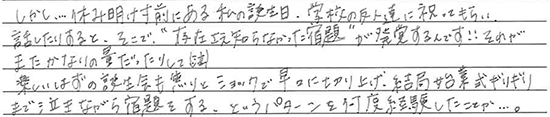 しかし…休み明けすぐ前にある私の誕生日、学校の友人達に祝ってもらい、
話したりすると、そこで"存在すら知らなかった宿題"が発覚するんです!!それが
またかなりの量だったりして
楽しいはずの誕生会も焦りとショックで早々に切り上げ、結局始業式ぎりぎり
まで泣きながら宿題をする、というパターンを何度経験したことか…。